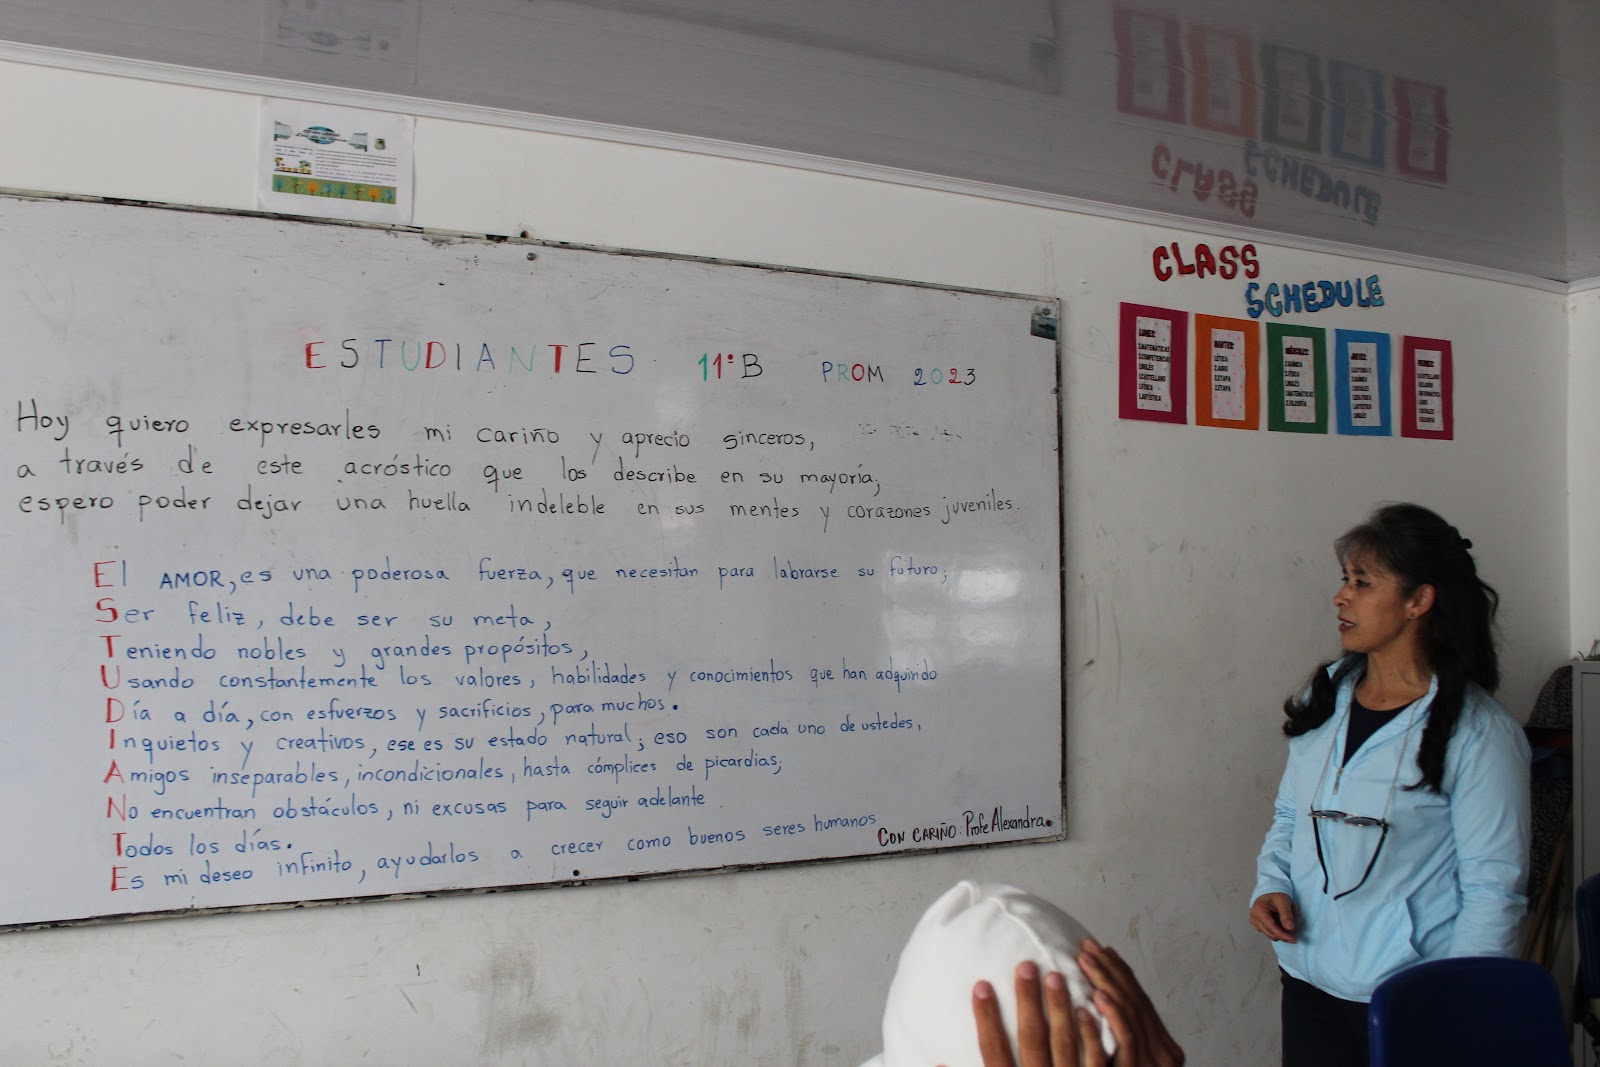 ESTUDIANTES 11°B PROM 2023
Hoy quiero expresarles mi cariño y aprecio sinceros,
a través de este acróstico que los describe en su mayoría;
espero poder dejar una huella indeleble en sus mentes y corazones juveniles.
El AMOR, es una poderosa fuerza, que necesitan para labrarse su futuro;
Ser feliz, debe ser su meta,
Teniendo nobles y grandes propósitos,
Usando constantemente los valores, habilidades y conocimientos que han adquirido
Día a día, con esfuerzos y sacrificios, para muchos.
Inquietos y creativos, ese es su estado natural; eso son cada uno de ustedes,
Amigos inseparables, incondicionales, hasta cómplices de picardias;
No encuentran obstáculos, ni excusas para seguir adelante.
Todos los días.
Es mi deseo infinito, ayudarlos a crecer como buenos seres humanos
CON CARIÑO: Profe Alexandra.
CLASS
SCHEDULE
LUNES:
MARTES:
MIÉRCOLES:
JUEVES: